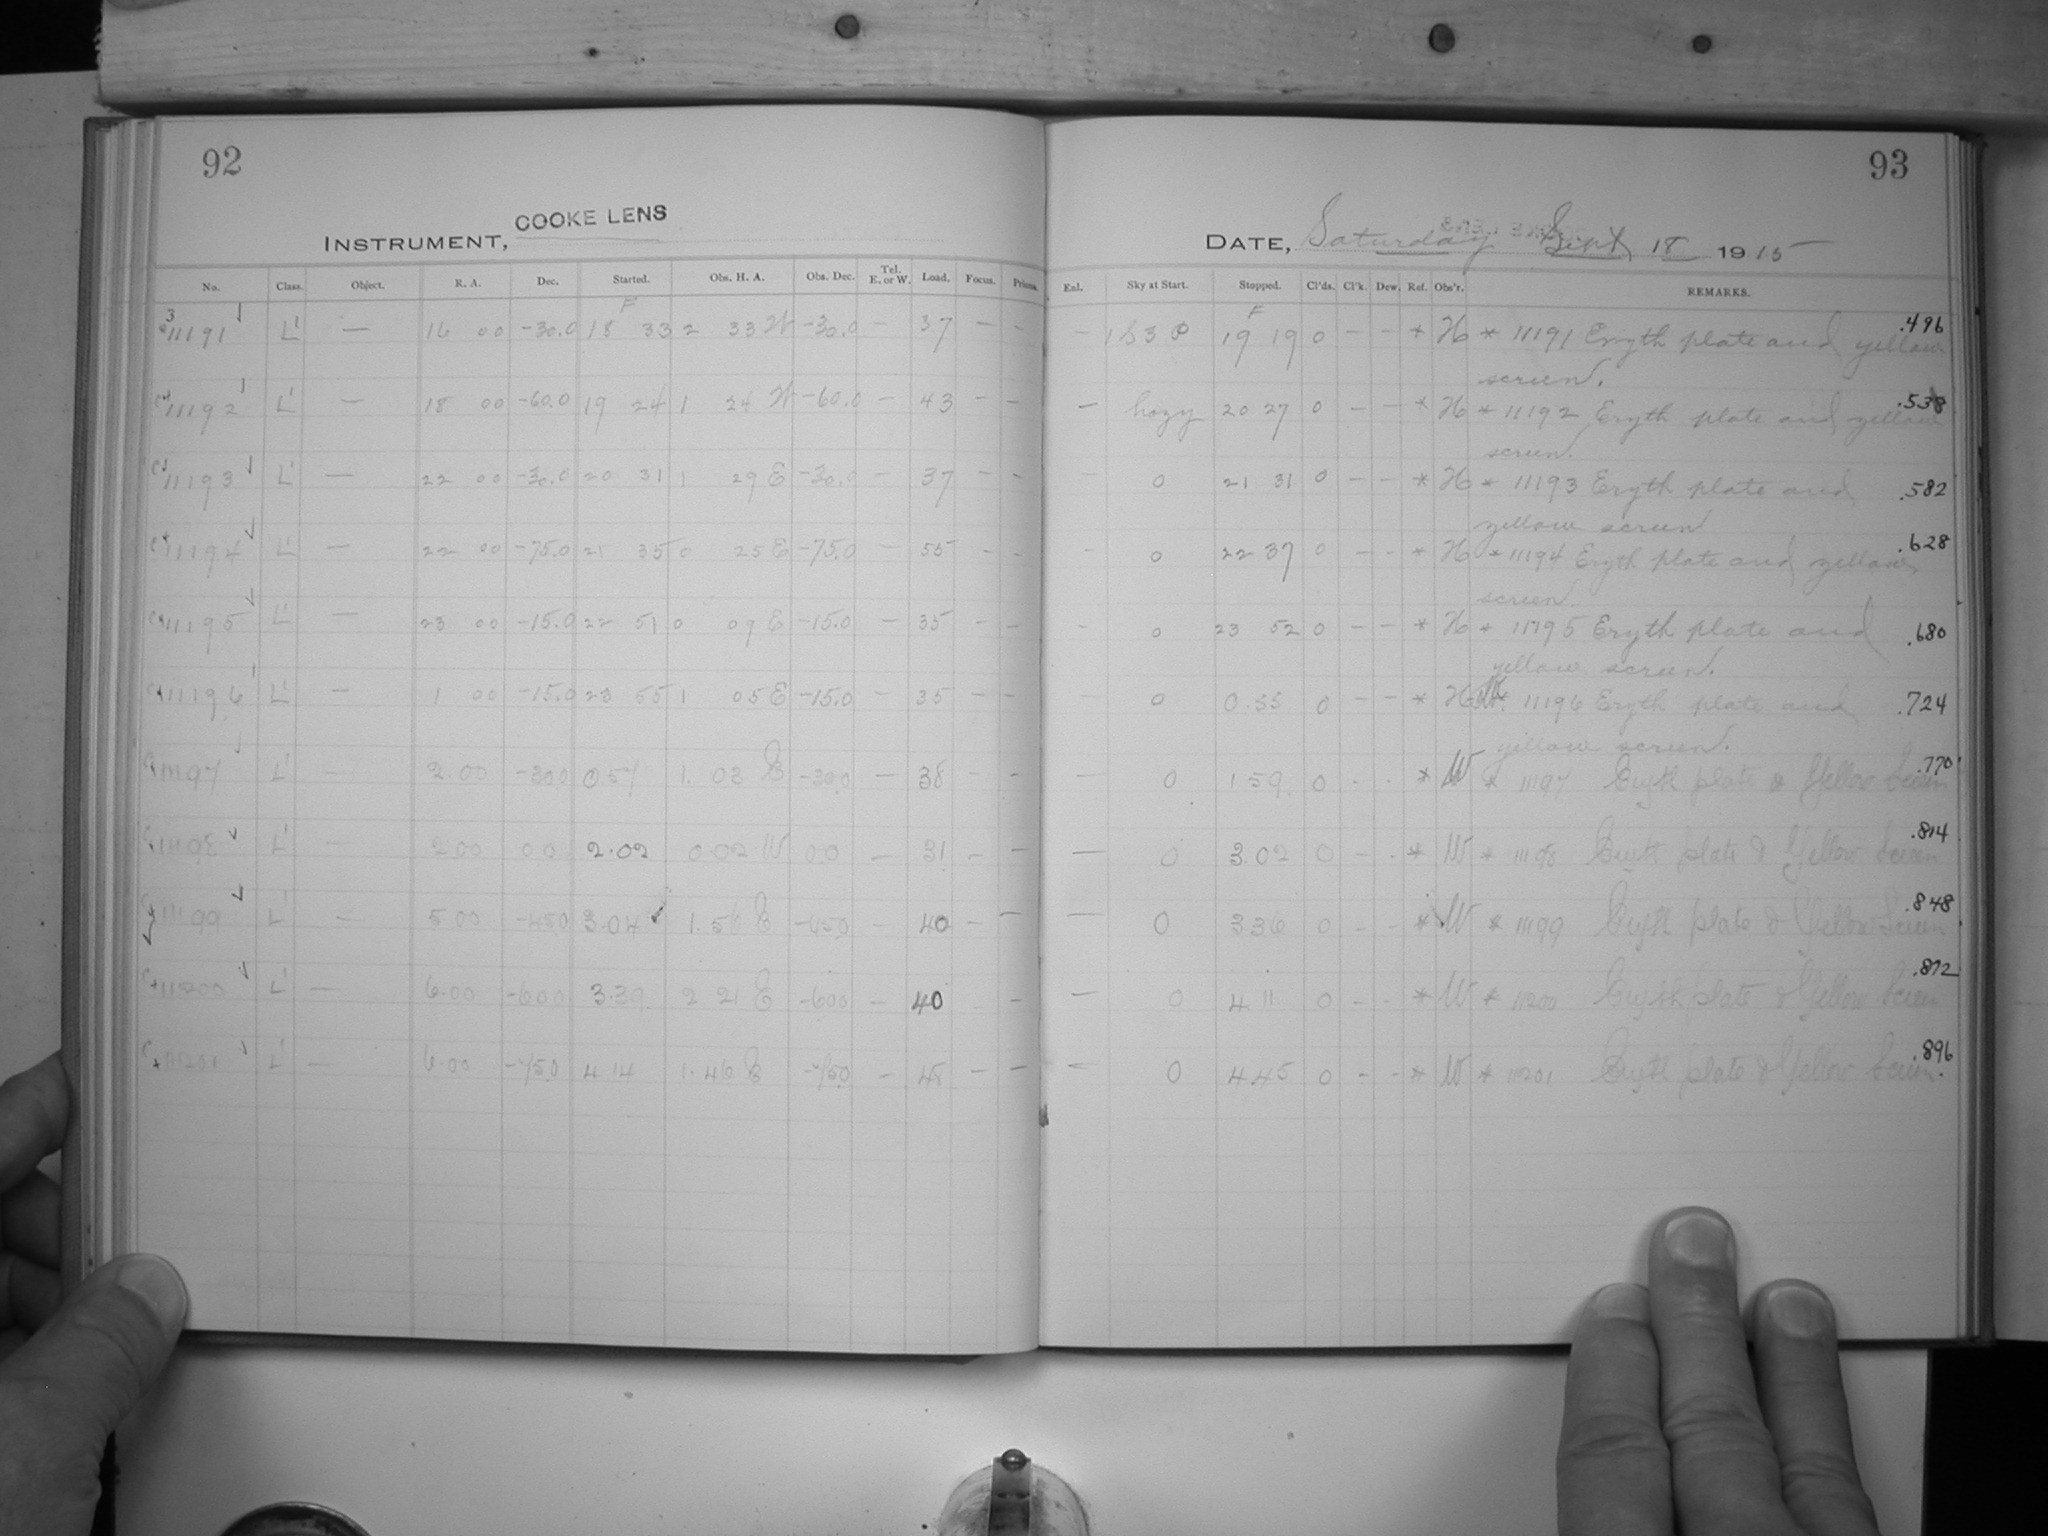 92
93
COOKE LENS
INSTRUMENT,
DATE, Saturday Sept 18 1915
No. Class. Object. R. A. Dec. Started. Obs. H. A. Obs. Dec. Tel. E. or W. Load. Focus. Prisms. Enl. Sky at Start. Stopped. Cl'ds. Cl'k. Dew. Ref. Obs'r. REMARKS.
F F
11191 L' — 16 00 -30.0 18 33 2 33 W -30.0 — 37 — — — 19 19 0 — — * H * 11191 Eryth plate and yellow .496
screen.
11192 L' — 18 00 -60.0 19 24 1 24 W -60.0 — 43 — — — hazy 20 27 0 — — * H * 11192 Eryth plate and yellow .538
screen.
11193 L' — 22 00 -30.0 20 31 1 29 E -30.0 — 37 — — — 0 21 31 0 — — * H * 11193 Eryth plate and .582
yellow screen
11194 L' — 22 00 -75.0 21 35 0 25 E -75.0 — 55 — — — 0 22 37 0 — — * H * 11194 Eryth plate and yellow .628
screen.
11195 L' — 23 00 -15.0 22 51 0 09 E -15.0 — 35 — — — 0 23 52 0 — — * H * 11195 Eryth plate and .680
yellow screen.
11196 L' — 1 00 -15.0 23 55 1 05 E -15.0 — 35 — — — 0 0.55 0 — — * H * 11196 Eryth plate and .724
yellow screen.
11197 L' — 2.00 -30.0 0 57 1. 03 E -30.0 — 38 — — — 0 1 59 0 - - * W * 11197 Eryth plate & Yellow Screen .770
11198 L' — 2.00 0.0 2.02 0.02 W 0.0 — 31 — — — 0 3.02 0 - - * W * 11198 Eryth plate & Yellow Screen .814
11199 L' — 5.00 -45.0 3.04 1.56 E -45.0 — 40 — — — 0 3 36 0 - - * W * 11199 Eryth plate & Yellow Screen .848
11200 L' — 6.00 -60.0 3.39 2 21 E -60.0 — 40 — — — 0 4 11 0 - - * W * 11200 Eryth plate & Yellow Screen .872
11201 L' — 6.00 -75.0 4 14 1.46 E -75.0 — — — — 0 4.45 0 - - * W * 11201 Eryth plate & Yellow Screen. .896